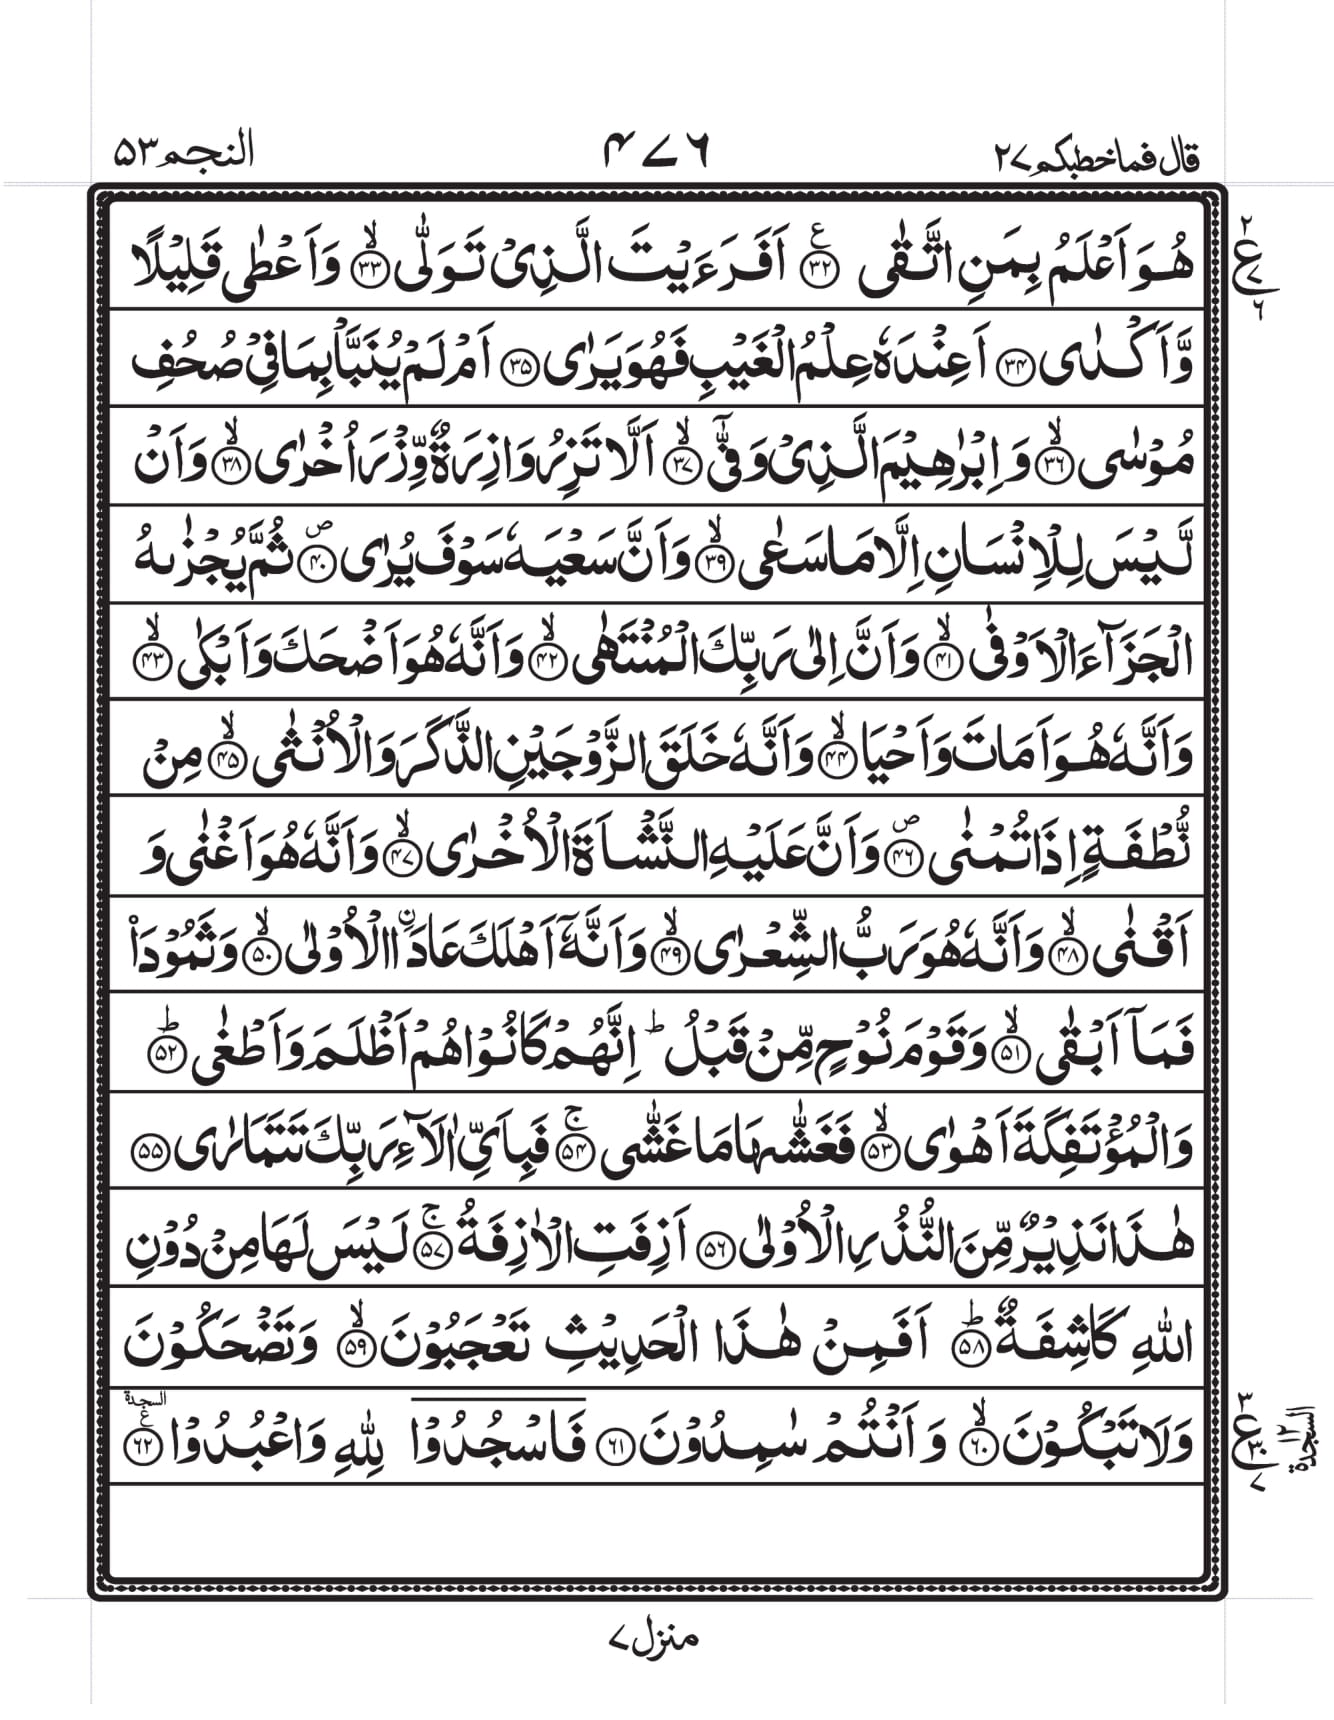 قال فماخطبكم ۲۷ ۴۷۶ النجم ۵۳
هُوَ اَعْلَمُ بِمَنِ اتَّقٰى ۟ۧ ﴿۳۲﴾ اَفَرَءَيْتَ الَّذِىْ تَوَلّٰى ۙ﴿۳۳﴾ وَاَعْطٰى قَلِيْلًا
وَّاَكْدٰى ﴿۳۴﴾ اَعِنْدَهٗ عِلْمُ الْغَيْبِ فَهُوَ يَرٰى ﴿۳۵﴾ اَمْ لَمْ يُنَبَّاْ بِمَا فِىْ صُحُفِ
مُوْسٰى ۙ﴿۳۶﴾ وَاِبْرٰهِيْمَ الَّذِىْ وَفّٰٓى ۙ﴿۳۷﴾ اَلَّا تَزِرُ وَازِرَةٌ وِّزْرَ اُخْرٰى ۙ﴿۳۸﴾ وَاَنْ
لَّيْسَ لِلْاِنْسَانِ اِلَّا مَا سَعٰى ۙ﴿۳۹﴾ وَاَنَّ سَعْيَهٗ سَوْفَ يُرٰى ۪﴿۴۰﴾ ثُمَّ يُجْزٰىهُ
الْجَزَآءَ الْاَوْفٰى ۙ﴿۴۱﴾ وَاَنَّ اِلٰى رَبِّكَ الْمُنْتَهٰى ۙ﴿۴۲﴾ وَاَنَّهٗ هُوَ اَضْحَكَ وَاَبْكٰى ۙ﴿۴۳﴾
وَاَنَّهٗ هُوَ اَمَاتَ وَاَحْيَا ۙ﴿۴۴﴾ وَاَنَّهٗ خَلَقَ الزَّوْجَيْنِ الذَّكَرَ وَالْاُنْثٰى ۙ﴿۴۵﴾ مِنْ
نُّطْفَةٍ اِذَا تُمْنٰى ۪﴿۴۶﴾ وَاَنَّ عَلَيْهِ النَّشْاَةَ الْاُخْرٰى ۙ﴿۴۷﴾ وَاَنَّهٗ هُوَ اَغْنٰى وَ
اَقْنٰى ۙ﴿۴۸﴾ وَاَنَّهٗ هُوَ رَبُّ الشِّعْرٰى ۙ﴿۴۹﴾ وَاَنَّهٗٓ اَهْلَكَ عَادَا ۨالْاُوْلٰى ۙ﴿۵۰﴾ وَثَمُوْدَا۟
فَمَآ اَبْقٰى ۙ﴿۵۱﴾ وَقَوْمَ نُوْحٍ مِّنْ قَبْلُ ؕ اِنَّهُمْ كَانُوْا هُمْ اَظْلَمَ وَاَطْغٰى ؕ﴿۵۲﴾
وَالْمُؤْتَفِكَةَ اَهْوٰى ۙ﴿۵۳﴾ فَغَشّٰىهَا مَا غَشّٰى ۚ﴿۵۴﴾ فَبِاَىِّ اٰلَآءِ رَبِّكَ تَتَمَارٰى ﴿۵۵﴾
هٰذَا نَذِيْرٌ مِّنَ النُّذُرِ الْاُوْلٰى ﴿۵۶﴾ اَزِفَتِ الْاٰزِفَةُ ۚ﴿۵۷﴾ لَيْسَ لَهَا مِنْ دُوْنِ
اللّٰهِ كَاشِفَةٌ ؕ﴿۵۸﴾ اَفَمِنْ هٰذَا الْحَدِيْثِ تَعْجَبُوْنَ ۙ﴿۵۹﴾ وَتَضْحَكُوْنَ
وَلَا تَبْكُوْنَ ۙ﴿۶۰﴾ وَاَنْتُمْ سٰمِدُوْنَ ﴿۶۱﴾ فَاسْجُدُوْا لِلّٰهِ وَاعْبُدُوْا ﴿۶۲﴾ السجدة ع
۲ ع ۷ ۶
۳ ع ۳۰ ۷
السجدة ۱۲
منزل ۷